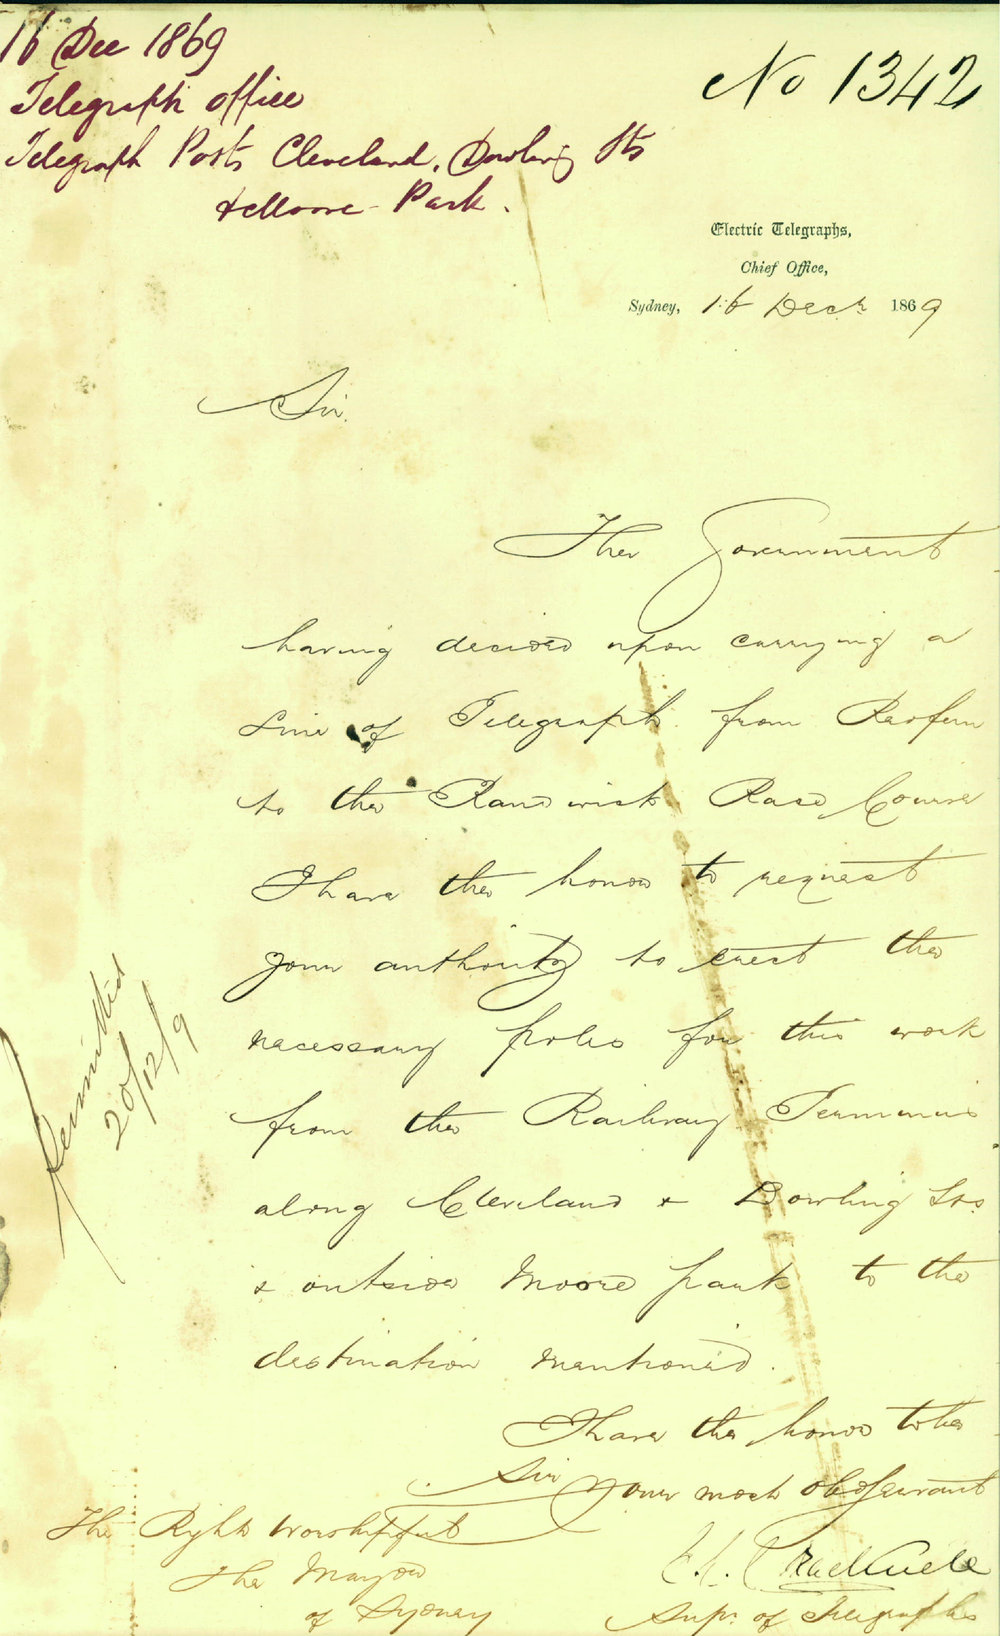 16 Dec 1869
Telegraph office
Telegraph Posts Cleveland, Dowling Sts
& Moore Park.
No 1342
Electric Telegraphs,
Chief Office,
Sydney, 16 Decr. 1869
Sir.
The Government
having decided upon carrying a
Line of Telegraph from Redfern
to the Randwick Race Course
I have the honor to request
your authority to erect the
necessary poles for this work
from the Railway Terminus
along Cleveland & Dowling Sts.
& outside Moore park to the
destination mentioned.
Permitted
20/12/9
I have the honor to be
Sir
your most obdServant
E.C. Cracknell
Supr. of Telegraphs
The Right Worshipful
The Mayor
of Sydney